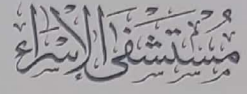 مُسْتَشْفَى الإِسْرَاء